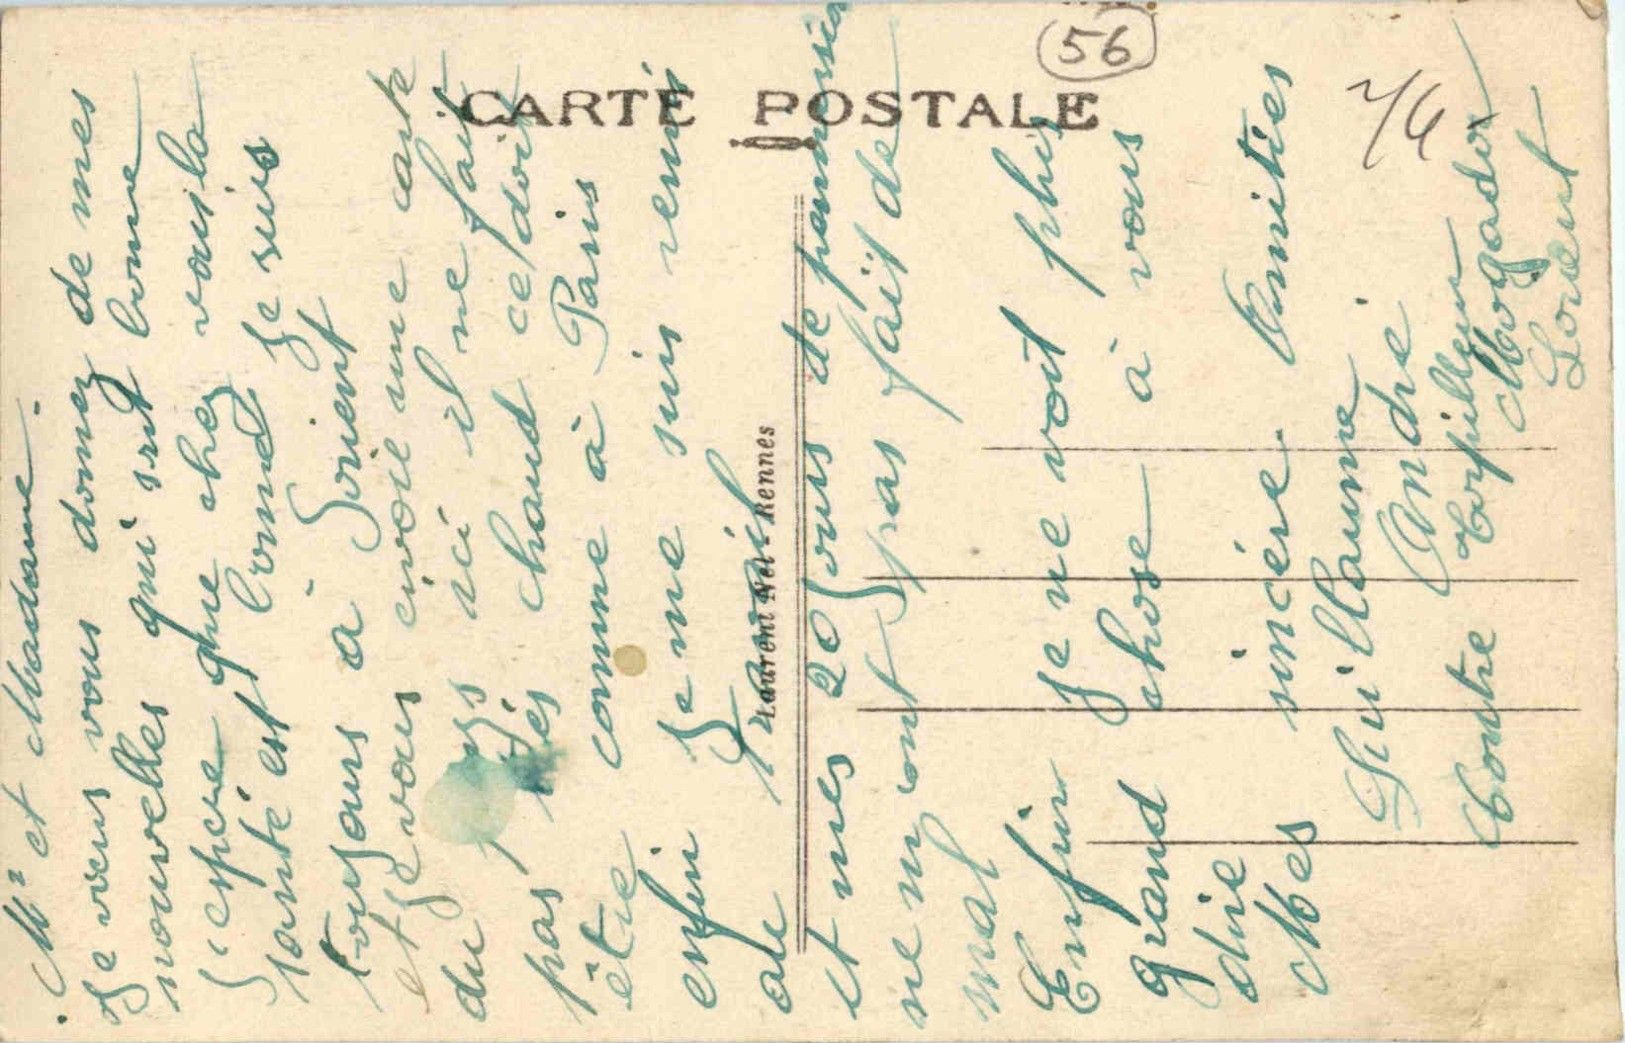 CARTE POSTALE
56
7/6
Laurent Nel - Rennes
Mr et Madame.
Je veus vous donnez de mes
nouvelles qui sont bonne
J'espere que chez vous la
santé est bonne Je suis
toujours a Lorient
et Je vous envoie une carte
du pays ici il ne fait
pas très chaud ce doit
être comme à Paris
enfin Je me suis remi
au travail
et mes 20 Jours de permission
ne m'ont pas fait de
mal
Enfin Je ne voit plus
grand chose à vous
dire
Mes sincére Amitiés
Guillaume André
Contre torpilleur
Mogador
Lorient